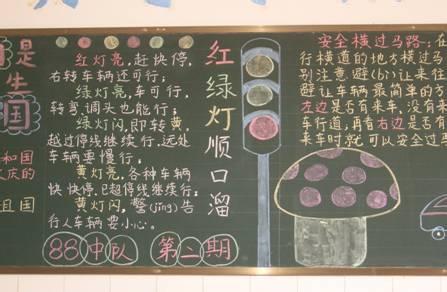 是
生
国
和国
庆的
且国
红灯亮,赶快停,
右转车辆还可行;
绿灯亮,车可行,
转弯调头也能行;
绿灯闪,即转黄,
越过停线继续行,远处
车辆要慢行,
黄灯亮,各种车辆
快快停,已超停线继续行;
黄灯闪,警(jǐng)告
行人车辆要小心。
88中队 第二期
红绿灯顺口溜
安全横过马路:在
行横道的地方横过马
别注意避(bì)让来行
避让车辆最简单的方
左边是否有来车,没有来
车行道,再看右边是否有
来车时就可以安全过